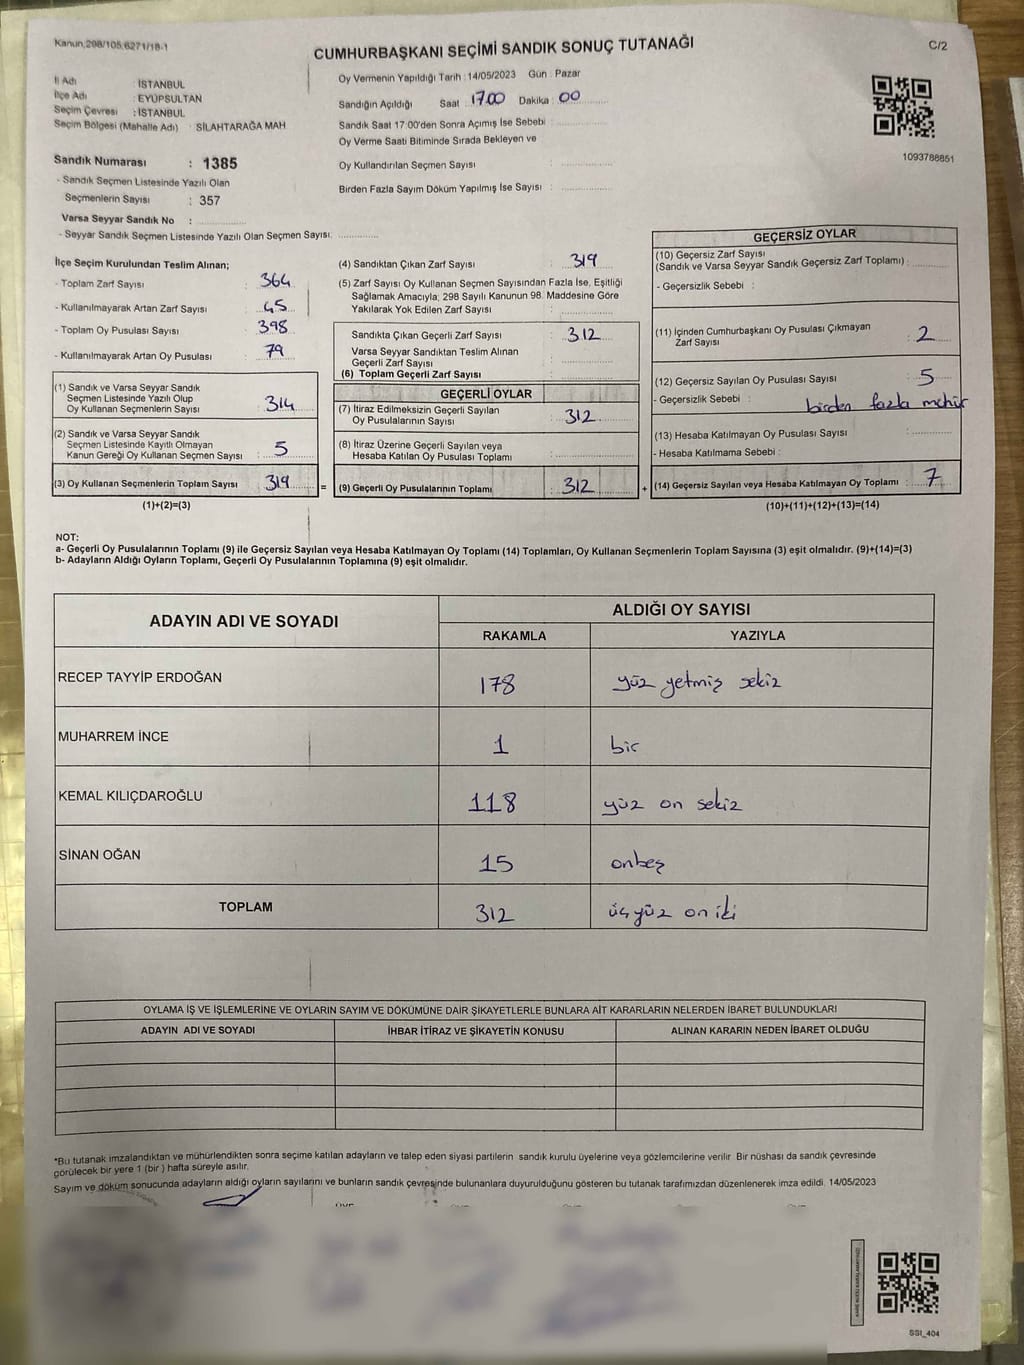 Kanun,298/105,6271/18-1
CUMHURBAŞKANI SEÇİMİ SANDIK SONUÇ TUTANAĞI
C/2
İl Adı : İSTANBUL
İlçe Adı : EYÜPSULTAN
Seçim Çevresi : İSTANBUL
Seçim Bölgesi (Mahalle Adı) : SİLAHTARAĞA MAH
Oy Vermenin Yapıldığı Tarih : 14/05/2023 Gün : Pazar
Sandığın Açıldığı Saat 17.00 Dakika : 00
Sandık Saat 17:00'den Sonra Açımış İse Sebebi :
Oy Verme Saati Bitiminde Sırada Bekleyen ve
Oy Kullandırılan Seçmen Sayısı :
Birden Fazla Sayım Döküm Yapılmış İse Sayısı :
1093788851
Sandık Numarası : 1385
- Sandık Seçmen Listesinde Yazılı Olan
Seçmenlerin Sayısı : 357
Varsa Seyyar Sandık No :
- Seyyar Sandık Seçmen Listesinde Yazılı Olan Seçmen Sayısı:
İlçe Seçim Kurulundan Teslim Alınan;
- Toplam Zarf Sayısı : 364
- Kullanılmayarak Artan Zarf Sayısı : 45
- Toplam Oy Pusulası Sayısı : 398
- Kullanılmayarak Artan Oy Pusulası : 79
(1) Sandık ve Varsa Seyyar Sandık
Seçmen Listesinde Yazılı Olup
Oy Kullanan Seçmenlerin Sayısı : 314
(2) Sandık ve Varsa Seyyar Sandık
Seçmen Listesinde Kayıtlı Olmayan
Kanun Gereği Oy Kullanan Seçmen Sayısı : 5
(3) Oy Kullanan Seçmenlerin Toplam Sayısı : 319 =
(1)+(2)=(3)
(4) Sandıktan Çıkan Zarf Sayısı : 319
(5) Zarf Sayısı Oy Kullanan Seçmen Sayısından Fazla İse, Eşitliği
Sağlamak Amacıyla; 298 Sayılı Kanunun 98. Maddesine Göre
Yakılarak Yok Edilen Zarf Sayısı :
Sandıkta Çıkan Geçerli Zarf Sayısı : 312
Varsa Seyyar Sandıktan Teslim Alınan
Geçerli Zarf Sayısı :
(6) Toplam Geçerli Zarf Sayısı :
GEÇERLİ OYLAR
(7) İtiraz Edilmeksizin Geçerli Sayılan
Oy Pusulalarının Sayısı : 312
(8) İtiraz Üzerine Geçerli Sayılan veya
Hesaba Katılan Oy Pusulası Toplamı :
(9) Geçerli Oy Pusulalarının Toplamı : 312 +
GEÇERSİZ OYLAR
(10) Geçersiz Zarf Sayısı
(Sandık ve Varsa Seyyar Sandık Geçersiz Zarf Toplamı) :
- Geçersizlik Sebebi :
(11) İçinden Cumhurbaşkanı Oy Pusulası Çıkmayan
Zarf Sayısı : 2
(12) Geçersiz Sayılan Oy Pusulası Sayısı : 5
- Geçersizlik Sebebi : birden fazla mühür
(13) Hesaba Katılmayan Oy Pusulası Sayısı :
- Hesaba Katılmama Sebebi :
(14) Geçersiz Sayılan veya Hesaba Katılmayan Oy Toplamı : 7
(10)+(11)+(12)+(13)=(14)
NOT:
a- Geçerli Oy Pusulalarının Toplamı (9) ile Geçersiz Sayılan veya Hesaba Katılmayan Oy Toplamı (14) Toplamları, Oy Kullanan Seçmenlerin Toplam Sayısına (3) eşit olmalıdır. (9)+(14)=(3)
b- Adayların Aldığı Oyların Toplamı, Geçerli Oy Pusulalarının Toplamına (9) eşit olmalıdır.
ADAYIN ADI VE SOYADI
ALDIĞI OY SAYISI
RAKAMLA YAZIYLA
RECEP TAYYİP ERDOĞAN 178 yüz yetmiş sekiz
MUHARREM İNCE 1 bir
KEMAL KILIÇDAROĞLU 118 yüz on sekiz
SİNAN OĞAN 15 onbeş
TOPLAM 312 üçyüz oniki
OYLAMA İŞ VE İŞLEMLERİNE VE OYLARIN SAYIM VE DÖKÜMÜNE DAİR ŞİKAYETLERLE BUNLARA AİT KARARLARIN NELERDEN İBARET BULUNDUKLARI
ADAYIN ADI VE SOYADI İHBAR İTİRAZ VE ŞİKAYETİN KONUSU ALINAN KARARIN NEDEN İBARET OLDUĞU
*Bu tutanak imzalandıktan ve mühürlendikten sonra seçime katılan adayların ve talep eden siyasi partilerin sandık kurulu üyelerine veya gözlemcilerine verilir Bir nüshası da sandık çevresinde
görülecek bir yere 1 (bir ) hafta süreyle asılır.
Sayım ve döküm sonucunda adayların aldığı oyların sayılarını ve bunların sandık çevresinde bulunanlara duyurulduğunu gösteren bu tutanak tarafımızdan düzenlenerek imza edildi. 14/05/2023
SSI_404